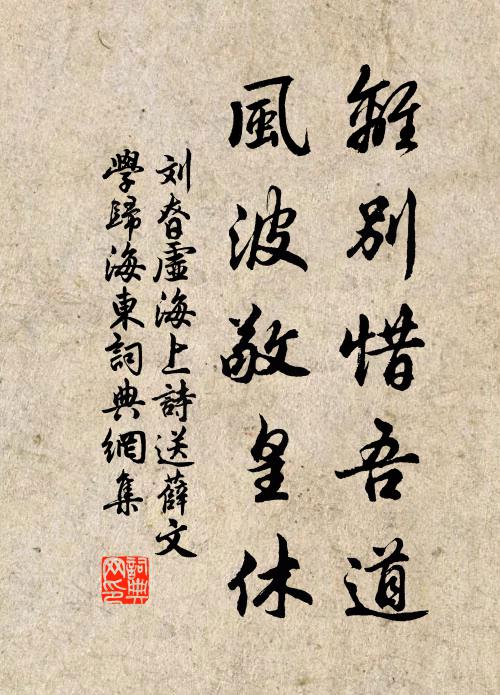 離別惜吾道
風波敬皇休
刘眘虚海上詩送薛文
學歸海東詞典網集
詞典网印